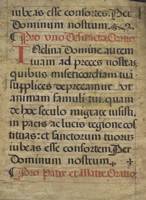 iubeas esse consortes. Per
Dominum nostrum.
Pro uno Defuncto Oratio
Inclina Domine aurem
tuam ad preces nostras
quibus misericordiam tuā
supplices deprecamur ut
animam famuli tui quam
de hoc sęculo migrare iussisti,
in pacis ac lucis regione cō
stituas: et sanctorum tuorū
iubeas esse consortem. Per
Dominum nostrum
Pro Patre et Matre Oratio